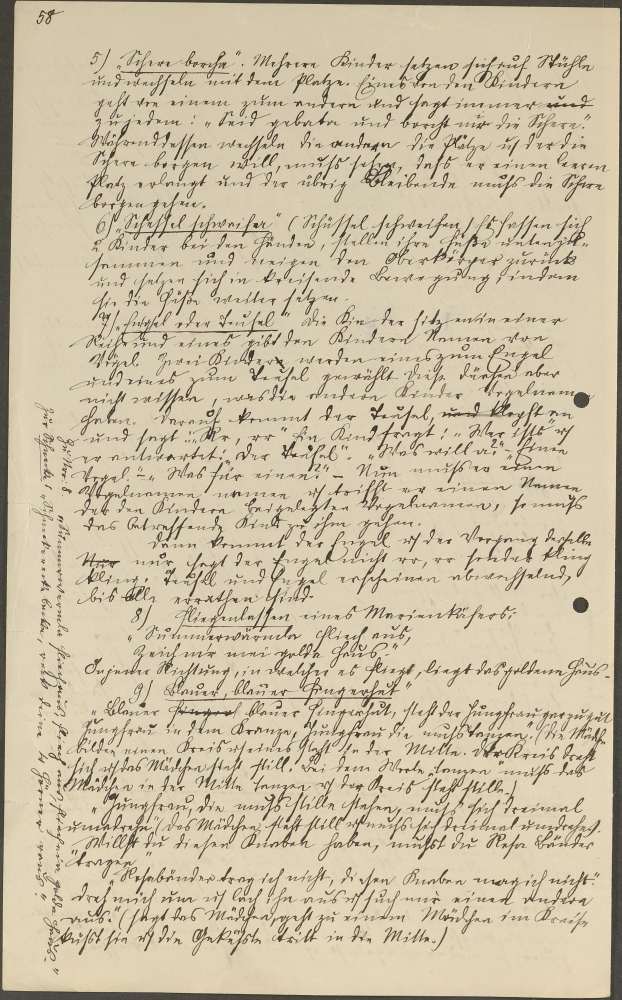 58
5) „Schere borche“. Mehrere Kinder setzen sich auf Stühle
und wechseln mit dem Platze. Eines von den Kindern
geht von einem zum andern und sagt immer und
zu jedem: „Seid gebata und borcht mir die Schere“.
Währenddessen wechseln die andern die Plätze u der die
Schere borgen will, muss sehen, dass er einen leeren
Platz erlangt und der übrig Bleibende muss die Schere
borgen gehen.
6) „Schessel schweifa“ (Schüssel schweifen) Es fassen sich
2 Kinder bei den Händen, stellen ihre Füsse
sammen und neigen den Oberkörper zurück
und setzen sich in kreisende Bewegung, indem
sie die Füsse weiter setzen.
7) „Engel oder Teufel“ Die Kinder sitzen in einer
Reihe und eines gibt den Kindern Namen von
Vögel. Zwei Kinder werden eines zum Engel
und eines zum Teufel gewählt Diese dürfen aber
nicht wissen, was die andern Kinder Vogelnamen
haben. Darauf kommt der Teufel, und klopft an
und sagt: „rr, rr“ Ein Kind fragt: „Wer ists“ u
er antwortet: „Der Teufel“. „Was will a?“ – „Einen
Vogel.“ – „Was für einen?“ – Nun muss er einen
Vogelnamen nennen u trifft er einen Namen
der den Kindern beigelegten Vogelnamen, so muss
das betreffende Kind zu ihm gehen.
Dann kommt der Engel u der Vorgang derselbe
Nur nur sagt der Engel nicht rr, rr sonder kling
kling. Teufel und Engel erscheinen abwechselnd,
bis alle errathen sind.
8) Fliegenlassen eines Marienkäfers:
„Summerwürmla fliech aus,
Zeich mir mei golda Haus.“
In jener Richtung, in welcher es fliegt, liegt das goldene Haus.
9) Blauer, blauer Fingerhut“
„Blauer Finger blauer Fingerhut, steht der Jungfrau gar zu gut
Jungfrau in dem Kranze, Jungfrau die muss tanzen. (Die Mädchen
bilden einen Kreis u eines steht in der Mitte. Der Kreis dreht
sich u das Mädchen steht still. Bei dem Worte „tanzen“ muss das
Mädchen in der Mitte tanzen u der Kreis steht stille.)
„Jungfrau, die muss stille stehen, muss sich dreimal
umadrehn“ (Das Mädchen steht still u muss sich dreimal umdrehen).
„Willst du diesen Knaben haben, musst du Rosa Bänder
tragen“
„Rosabänder trag ich nicht, diesen Knaben mag ich nicht“.
„Dreh mich um u lach ihn aus u such mir einen andern
aus.“ (sagt das Mädchen, geht zu einem Mädchen im Kreise
küsst sie u die Geküsste tritt in die Mitte.)
zu Nr. 8